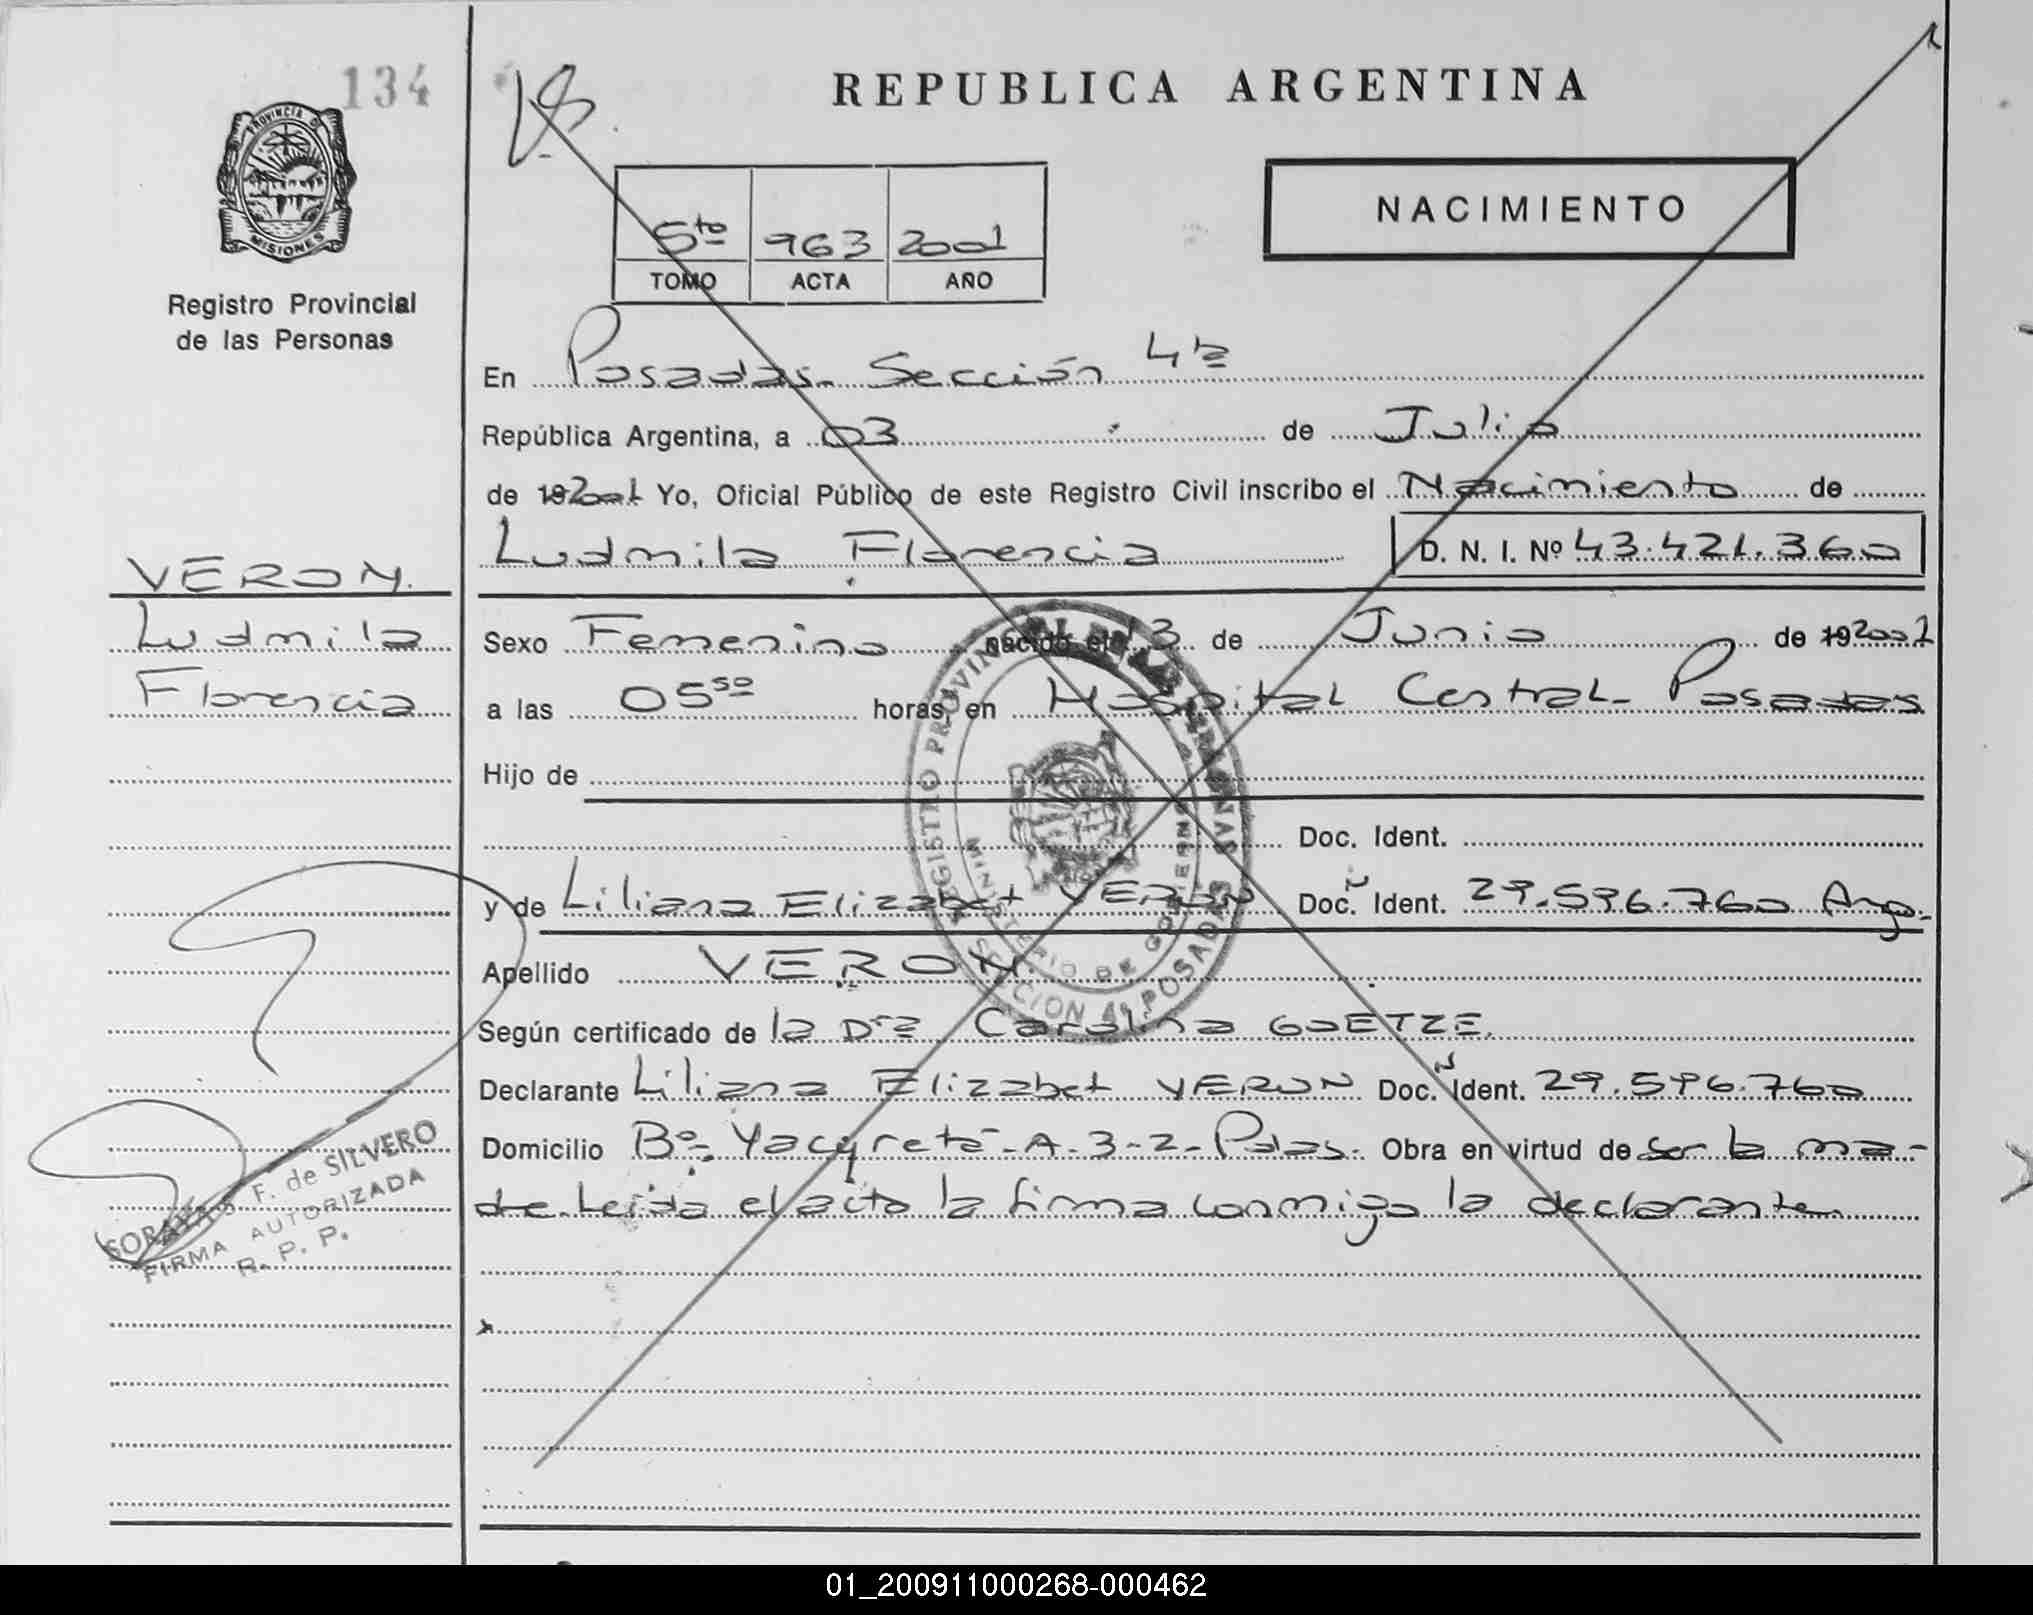 134
PROVINCIA D
MISIONES
Registro Provincial
de las Personas
REPUBLICA ARGENTINA
NACIMIENTO
5to 963 2001
TOMO ACTA AÑO
En Posadas - Sección 4ta
República Argentina, a 03 de Julio
de 192001 Yo, Oficial Público de este Registro Civil inscribo el Nacimiento de
Ludmila Florencia D. N. I. Nº 43.421.360
VERON.
Ludmila
Florencia
Sexo Femenino nacido el 13 de Junio de 192001
a las 05 50 horas, en Hospital Central - Posadas
Hijo de
Doc. Ident.
y de Liliana Elizabet VERON Doc. Ident. 29.596.760 Arg.
Apellido VERON.
Según certificado de la Dra Carolina GOETZE.
Declarante Liliana Elizabet VERON Doc. Ident. 29.596.760
Domicilio Bº Yacyretá - A - 3 - 2 - Pdas. Obra en virtud de ser la ma-
dre. Leída el acta la firma conmigo la declarante
REGISTRO PROVINCIAL DE LAS PERSONAS
MINISTERIO DE GOBIERNO
SECCION 4ª POSADAS
SORAYA S F. de SILVERO
FIRMA AUTORIZADA
R. P. P.
01_200911000268-000462